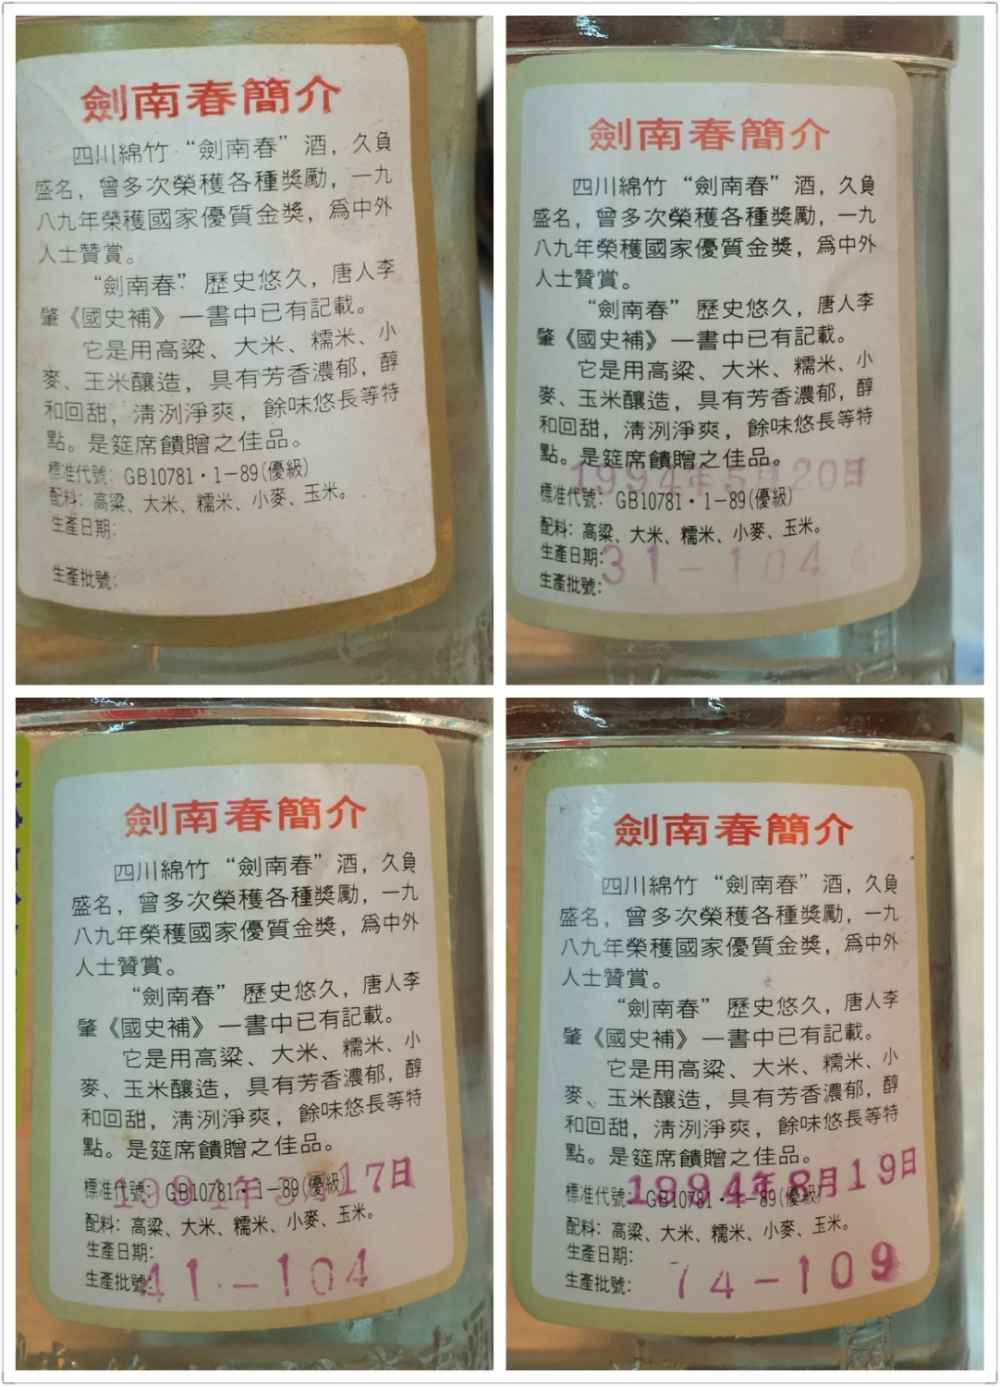 劍南春簡介
四川綿竹“劍南春”酒，久負
盛名，曾多次榮獲各種獎勵，一九
八九年榮獲國家優質金獎，爲中外
人士贊賞。
“劍南春”歷史悠久，唐人李
肇《國史補》一書中已有記載。
它是用高粱、大米、糯米、小
麥、玉米釀造，具有芳香濃郁，醇
和回甜，清洌淨爽，餘味悠長等特
點。是筵席饋贈之佳品。
標准代號：GB10781·1-89(優級)
配料：高粱、大米、糯米、小麥、玉米。
生產日期：
生產批號：
劍南春簡介
四川綿竹“劍南春”酒，久負
盛名，曾多次榮獲各種獎勵，一九
八九年榮獲國家優質金獎，爲中外
人士贊賞。
“劍南春”歷史悠久，唐人李
肇《國史補》一書中已有記載。
它是用高粱、大米、糯米、小
麥、玉米釀造，具有芳香濃郁，醇
和回甜，清洌淨爽，餘味悠長等特
點。是筵席饋贈之佳品。
1994年5月20日
標准代號：GB10781·1-89(優級)
配料：高粱、大米、糯米、小麥、玉米。
生產日期：
31-104
生產批號：
劍南春簡介
四川綿竹“劍南春”酒，久負
盛名，曾多次榮獲各種獎勵，一九
八九年榮獲國家優質金獎，爲中外
人士贊賞。
“劍南春”歷史悠久，唐人李
肇《國史補》一書中已有記載。
它是用高粱、大米、糯米、小
麥、玉米釀造，具有芳香濃郁，醇
和回甜，清洌淨爽，餘味悠長等特
點。是筵席饋贈之佳品。
17日
標准代號：GB10781·1-89(優級)
配料：高粱、大米、糯米、小麥、玉米。
生產日期：
生產批號：
41-104
劍南春簡介
四川綿竹“劍南春”酒，久負
盛名，曾多次榮獲各種獎勵，一九
八九年榮獲國家優質金獎，爲中外
人士贊賞。
“劍南春”歷史悠久，唐人李
肇《國史補》一書中已有記載。
它是用高粱、大米、糯米、小
麥、玉米釀造，具有芳香濃郁，醇
和回甜，清洌淨爽，餘味悠長等特
點。是筵席饋贈之佳品。
1994年8月19日
標准代號：GB10781·1-89(優級)
配料：高粱、大米、糯米、小麥、玉米。
生產日期：
生產批號：
74-109